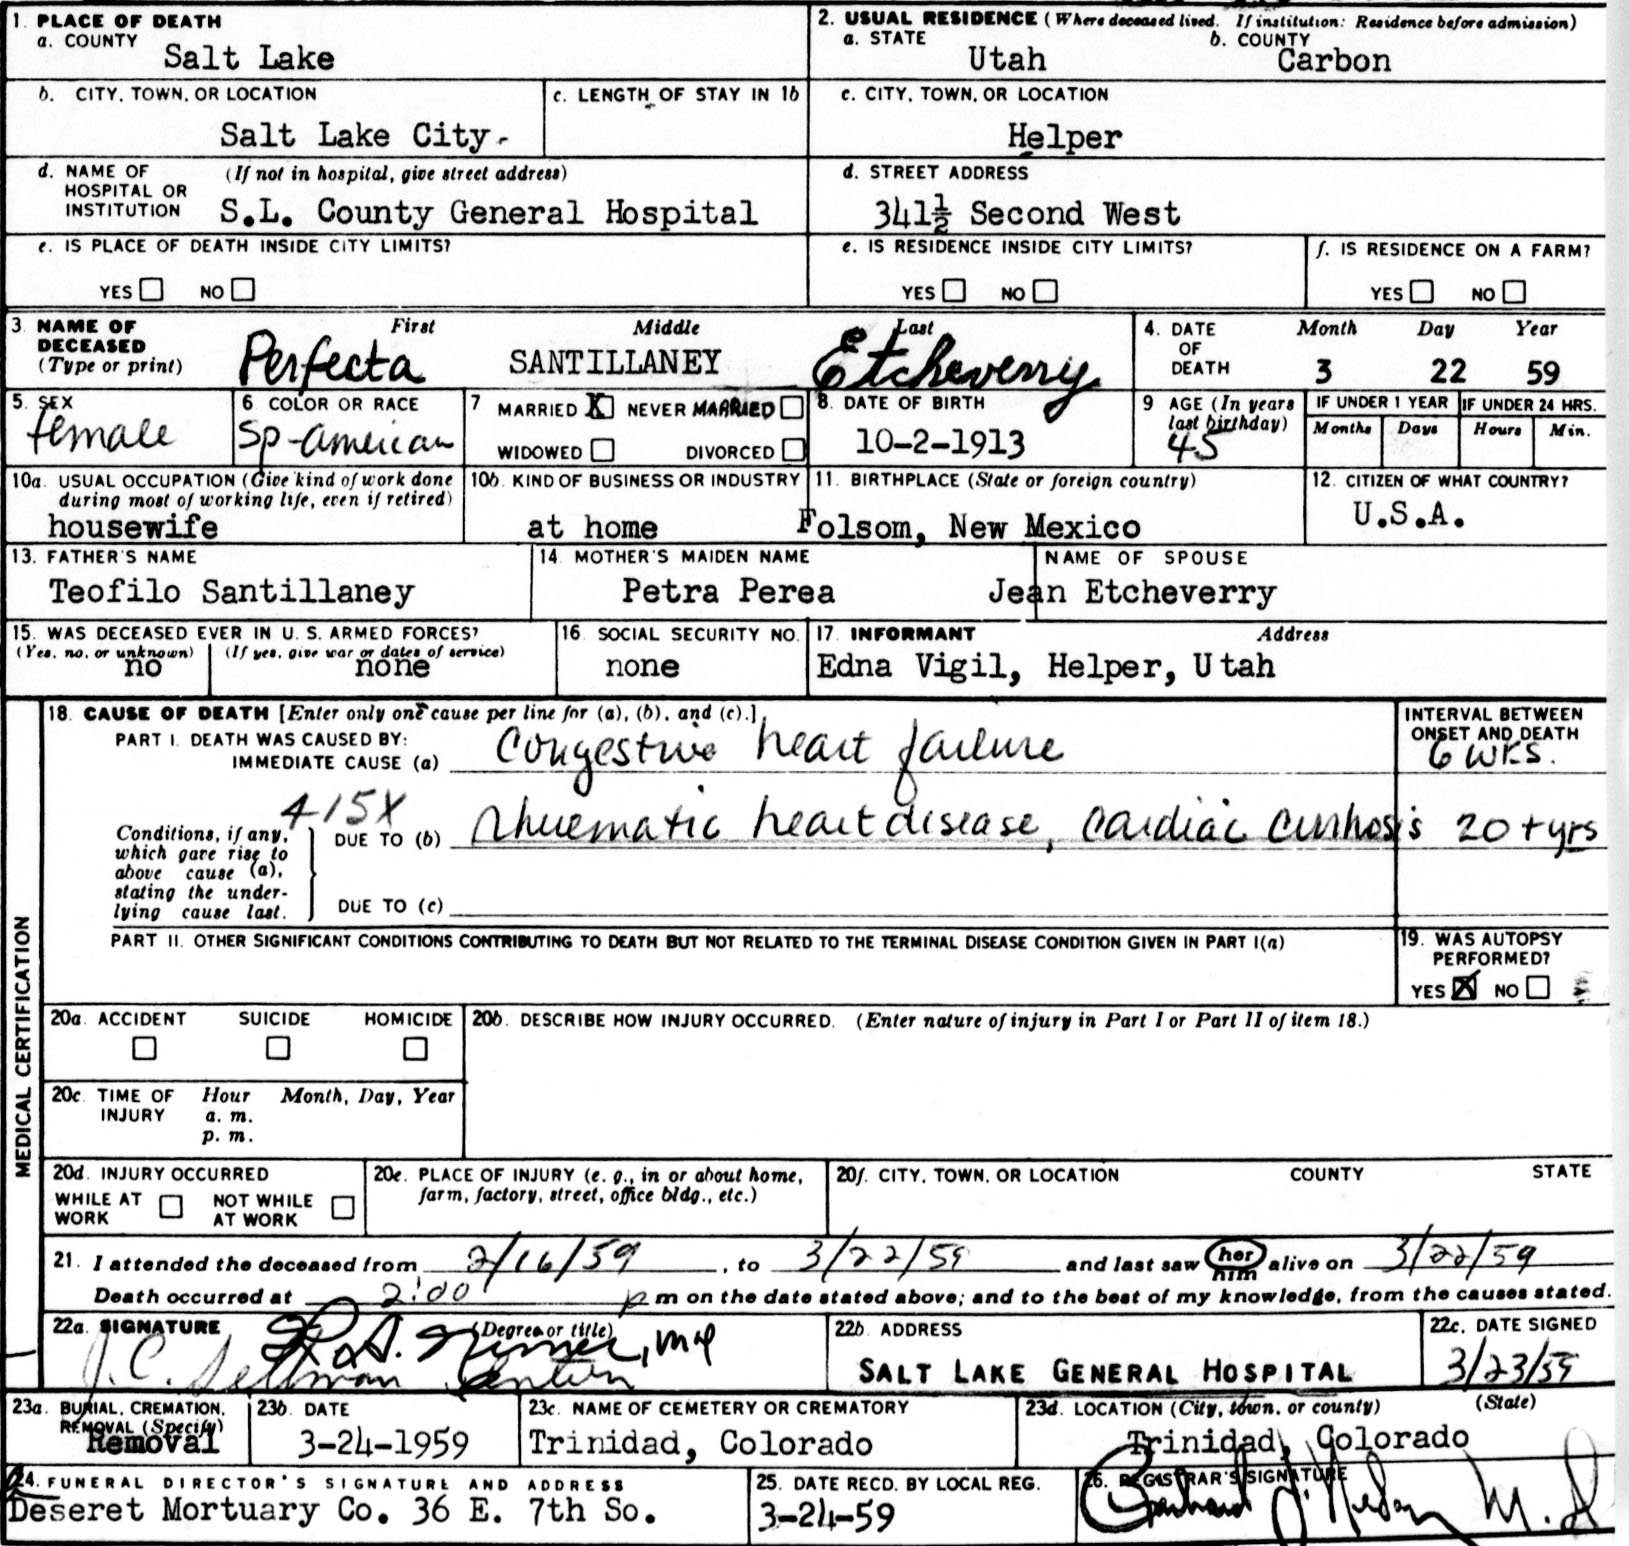 1. PLACE OF DEATH
a. COUNTY
Salt Lake
2. USUAL RESIDENCE (Where deceased lived. If institution: Residence before admission)
a. STATE
Utah
b. COUNTY
Carbon
b. CITY, TOWN, OR LOCATION
Salt Lake City
c. LENGTH OF STAY IN 1b
c. CITY, TOWN, OR LOCATION
Helper
d. NAME OF (If not in hospital, give street address)
HOSPITAL OR
INSTITUTION
S.L. County General Hospital
d. STREET ADDRESS
341½ Second West
e. IS PLACE OF DEATH INSIDE CITY LIMITS?
YES NO
e. IS RESIDENCE INSIDE CITY LIMITS?
YES NO
f. IS RESIDENCE ON A FARM?
YES NO
3. NAME OF
DECEASED
(Type or print)
First Middle Last
Perfecta SANTILLANEY Etcheverry
4. DATE
OF
DEATH
Month Day Year
3 22 59
5. SEX
female
6. COLOR OR RACE
Sp-American
7 MARRIED X NEVER MARRIED
WIDOWED DIVORCED
8. DATE OF BIRTH
10-2-1913
9 AGE (In years
last birthday)
45
IF UNDER 1 YEAR
Months Days
IF UNDER 24 HRS.
Hours Min.
10a. USUAL OCCUPATION (Give kind of work done
during most of working life, even if retired)
housewife
10b. KIND OF BUSINESS OR INDUSTRY
at home
11. BIRTHPLACE (State or foreign country)
Folsom, New Mexico
12. CITIZEN OF WHAT COUNTRY?
U.S.A.
13. FATHER'S NAME
Teofilo Santillaney
14. MOTHER'S MAIDEN NAME
Petra Perea
NAME OF SPOUSE
Jean Etcheverry
15. WAS DECEASED EVER IN U. S. ARMED FORCES?
(Yes, no, or unknown) (If yes, give war or dates of service)
no none
16. SOCIAL SECURITY NO.
none
17. INFORMANT Address
Edna Vigil, Helper, Utah
MEDICAL CERTIFICATION
18. CAUSE OF DEATH [Enter only one cause per line for (a), (b), and (c).]
PART I. DEATH WAS CAUSED BY:
IMMEDIATE CAUSE (a) Congestive heart failure
INTERVAL BETWEEN
ONSET AND DEATH
6 wks.
415X
Conditions, if any,
which gave rise to
above cause (a),
stating the under-
lying cause last.
DUE TO (b) Rhuematic heart disease, cardiac cirrhosis 20+ yrs
DUE TO (c)
PART II. OTHER SIGNIFICANT CONDITIONS CONTRIBUTING TO DEATH BUT NOT RELATED TO THE TERMINAL DISEASE CONDITION GIVEN IN PART I(a)
19. WAS AUTOPSY
PERFORMED?
YES X NO
20a. ACCIDENT SUICIDE HOMICIDE
20b. DESCRIBE HOW INJURY OCCURRED. (Enter nature of injury in Part I or Part II of item 18.)
20c. TIME OF
INJURY
Hour Month, Day, Year
a. m.
p. m.
20d. INJURY OCCURRED
WHILE AT
WORK
NOT WHILE
AT WORK
20e. PLACE OF INJURY (e. g., in or about home,
farm, factory, street, office bldg., etc.)
20f. CITY, TOWN, OR LOCATION COUNTY STATE
21. I attended the deceased from 2/16/59, to 3/22/59 and last saw her him alive on 3/22/59
Death occurred at 2:00 p m on the date stated above; and to the best of my knowledge, from the causes stated.
22a. SIGNATURE (Degree or title)
MD
J.C.
22b. ADDRESS
SALT LAKE GENERAL HOSPITAL
22c. DATE SIGNED
3/23/59
23a. BURIAL, CREMATION,
REMOVAL (Specify)
Removal
23b. DATE
3-24-1959
23c. NAME OF CEMETERY OR CREMATORY
Trinidad, Colorado
23d. LOCATION (City, town, or county) (State)
Trinidad, Colorado
24. FUNERAL DIRECTOR'S SIGNATURE AND ADDRESS
Deseret Mortuary Co. 36 E. 7th So.
25. DATE RECD. BY LOCAL REG.
3-24-59
26. REGISTRAR'S SIGNATURE
M.D.